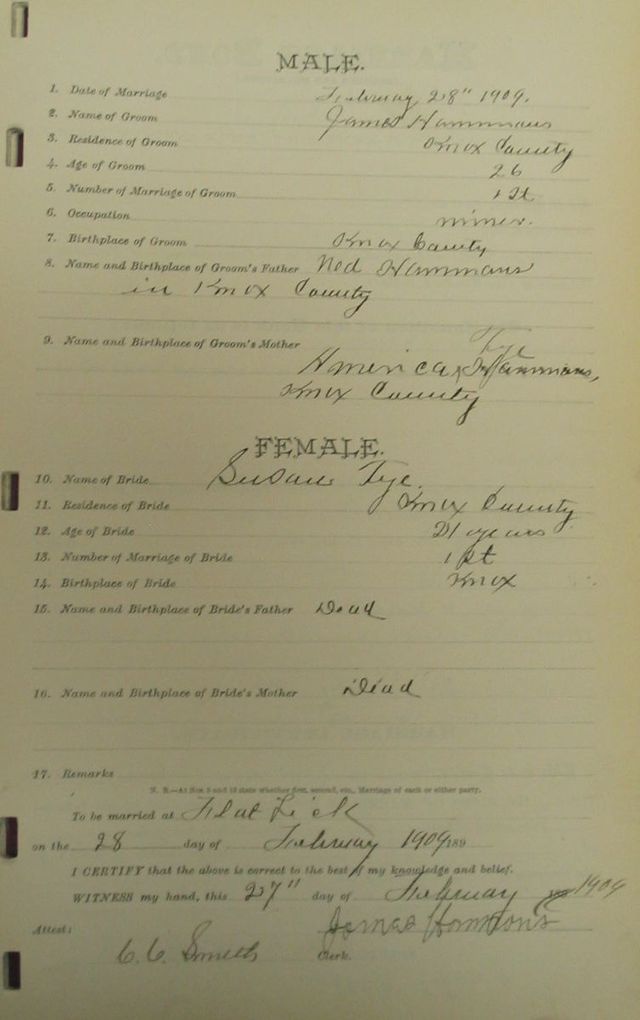 MALE.
1. Date of Marriage February 28" 1909.
2. Name of Groom James Hammans
3. Residence of Groom Knox County
4. Age of Groom 26
5. Number of Marriage of Groom 1st
6. Occupation miner.
7. Birthplace of Groom Knox County
8. Name and Birthplace of Groom's Father Ned Hammans
in Knox County
Tye
9. Name and Birthplace of Groom's Mother
America Hammans,
Knox County
FEMALE.
10. Name of Bride Susan Tye.
11. Residence of Bride Knox County
12. Age of Bride 21 years
13. Number of Marriage of Bride 1st
14. Birthplace of Bride Knox
15. Name and Birthplace of Bride's Father Dead
16. Name and Birthplace of Bride's Mother Dead
17. Remarks
N. B.—At Nos 5 and 13 state whether first, second, etc., Marriage of each or either party.
To be married at Flat Lick
on the 28 day of February 1909 189
I CERTIFY that the above is correct to the best of my knowledge and belief.
WITNESS my hand, this 27" day of February 1909
James Hammons
Attest:
C. C. Smith Clerk.